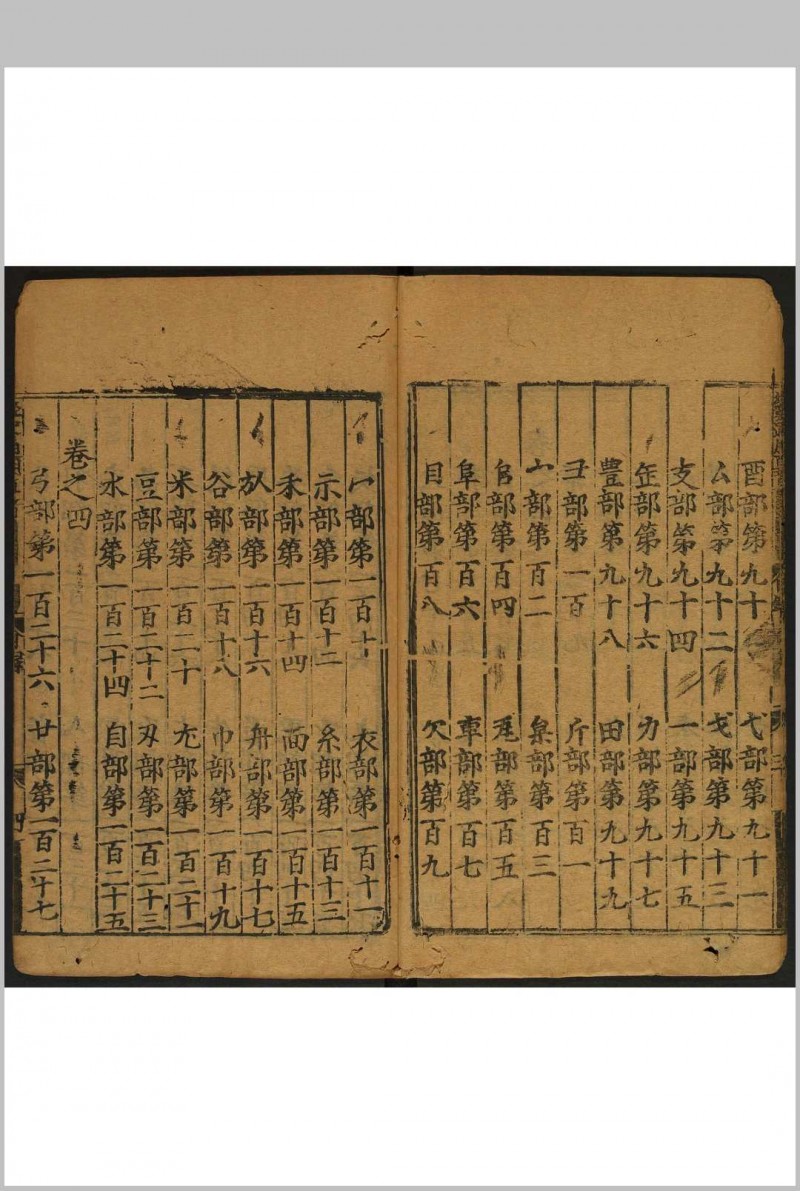 酉部第九十 弋部第九十一
厶部第九十二 戈部第九十三
支部第九十四 一部第九十五
缶部第九十六 力部第九十七
豊部第九十八 田部第九十九
丑部第一百 斤部第百一
宀部第百二 皃部第百三
𠂤部第百四 毛部第百五
阜部第百六 車部第百七
目部第百八 欠部第百九
冖部第一百十 衣部第一百十一
示部第一百十二 糸部第一百十三
禾部第一百十四 面部第一百十五
㫃部第一百十六 舟部第一百十七
谷部第一百十八 巾部第一百十九
米部第一百二十 尢部第一百二十一
豆部第一百二十二 刃部第一百二十三
水部第一百二十四 自部第一百二十五
卷之四
弓部第一百二十六 廿部第一百二十七